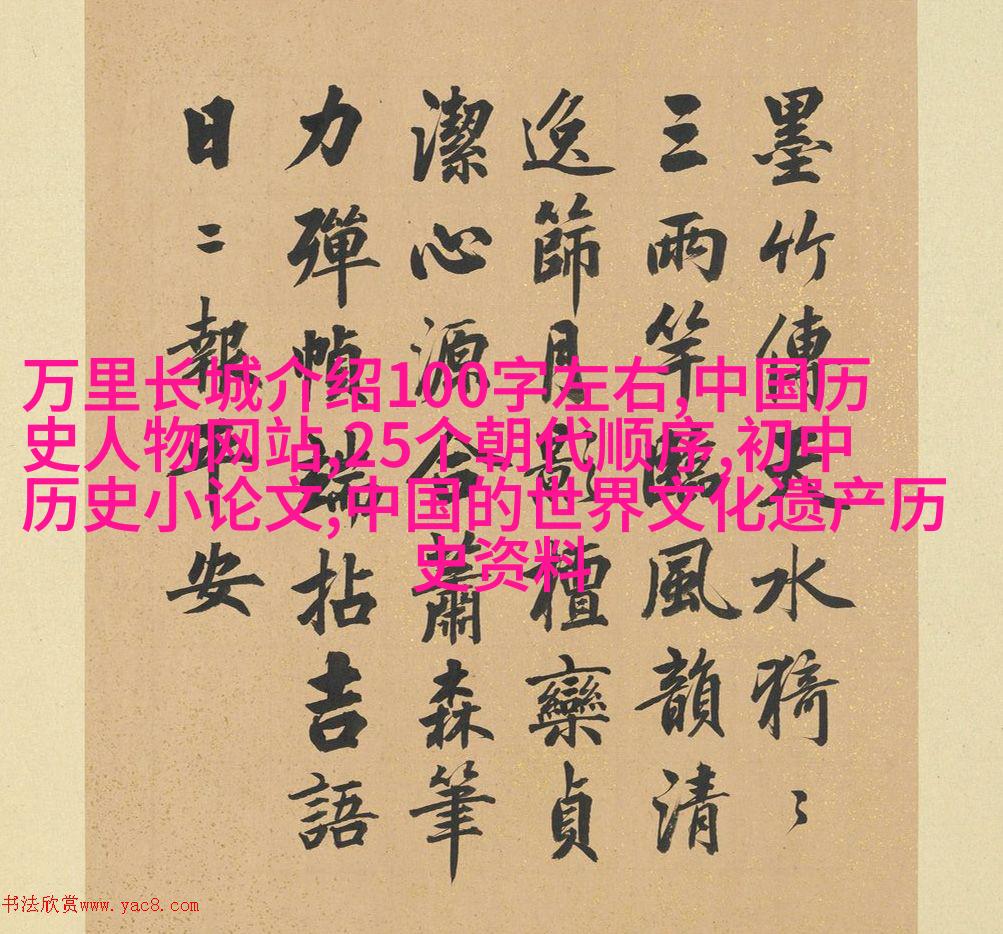 墨竹傳水猗〻
三兩竿風韻清
逸篩月檀欒貞
潔心源合蕭森筆
力彈幀端拈吉語
日〻報平安
万里长城介绍100字左右,中国历
史人物网站,25个朝代顺序,初中
历史小论文,中国的世界文化遗产历
史资料
书法欣赏www.yac8.com